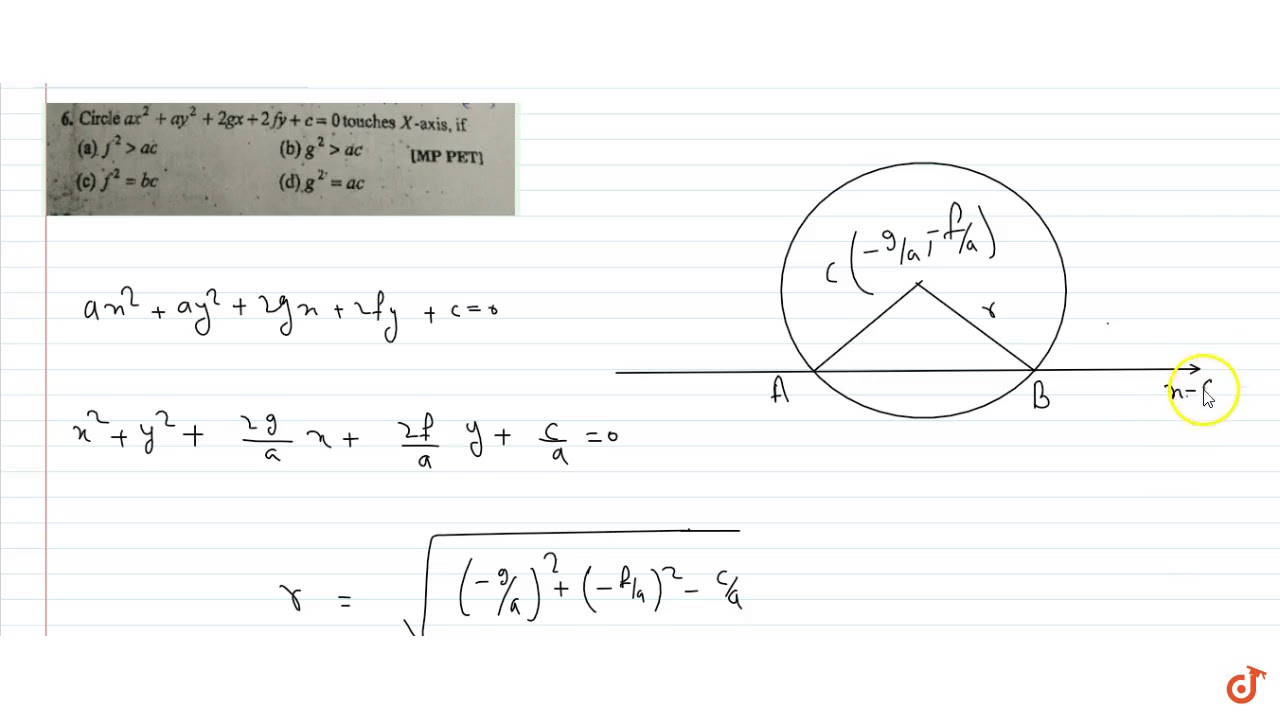 6. Circle ax² + ay² + 2gx + 2fy + c = 0 touches X-axis, if
(a) f² > ac (b) g² > ac [MP PET]
(c) f² = bc (d) g² = ac
C (-g/a, -f/a)
r
ax² + ay² + 2gx + 2fy + c = 0
A B
x² + y² + 2g/a x + 2f/a y + c/a = 0
r = √((-g/a)² + (-f/a)² - c/a